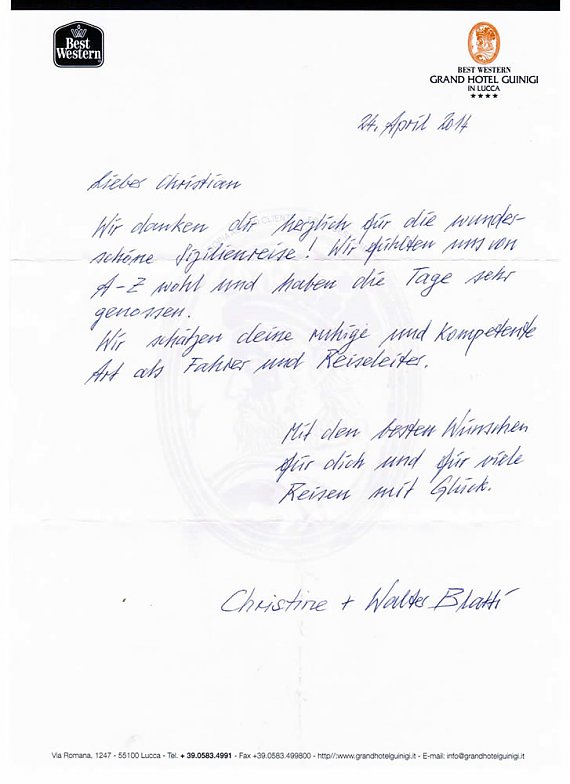 Best
Western
BEST WESTERN
GRAND HOTEL GUINIGI
IN LUCCA
24. April 2014
Lieber Christian
Wir danken dir herzlich für die wunder-
schöne Sizilienreise! Wir fühlten uns von
A-Z wohl und haben die Tage sehr
genossen.
Wir schätzen deine ruhige und kompetente
Art als Fahrer und Reiseleiter.
Mit den besten Wünschen
für dich und für viele
Reisen mit Glück.
Christine + Walter Blatti
Via Romana, 1247 - 55100 Lucca - Tel. + 39.0583.4991 - Fax +39.0583.499800 - http//:www.grandhotelguinigi.it - E-mail: info@grandhotelguinigi.it